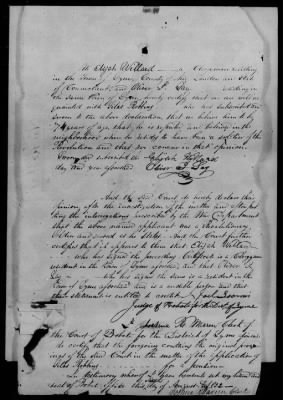 We Elijah Willard — a Clergyman residing
in the Town of Lyme, County of New London and State
of Connecticut, and Oliver I. Lay residing in
the same Town of Lyme hereby certify that we are well ac-
quainted with Silas Robbins who has subscribed and
sworn to the above declaration, that we believe him to be
74 years of age, that he is reputed and believed in the
neighborhood where he resides to have been a soldier of the
Revolution and that we concur in that opinion.
Sworn and subscribed the Elijah Willard
day and year aforesaid Oliver I. Lay
And the said Court do hereby declare their
opinion after the investigation of the matter and after put-
ting the interrogatories prescribed by the War Department
that the above named applicant was a Revolutionary
soldier and served as he states. And the Court further
certifies that it appears to them that Elijah Willard —
who has signed the preceding Certificate is a Clergyman
resident in the Town of Lyme aforesaid and that Oliver I.
Lay — who has signed the same is a resident in the
Town of Lyme aforesaid and is a credible person and that
their statement is entitled to credit.
Judge of Probate for the District of Lyme
I, Clerk of
the Court of Probate for the District of Lyme do here-
by certify that the foregoing contains the original procee-
dings of the said Court in the matter of the application of
Silas Robbins for a pension
In testimony whereof I have hereunto set my hand and
seal of Office this day of August 1832
Clerk